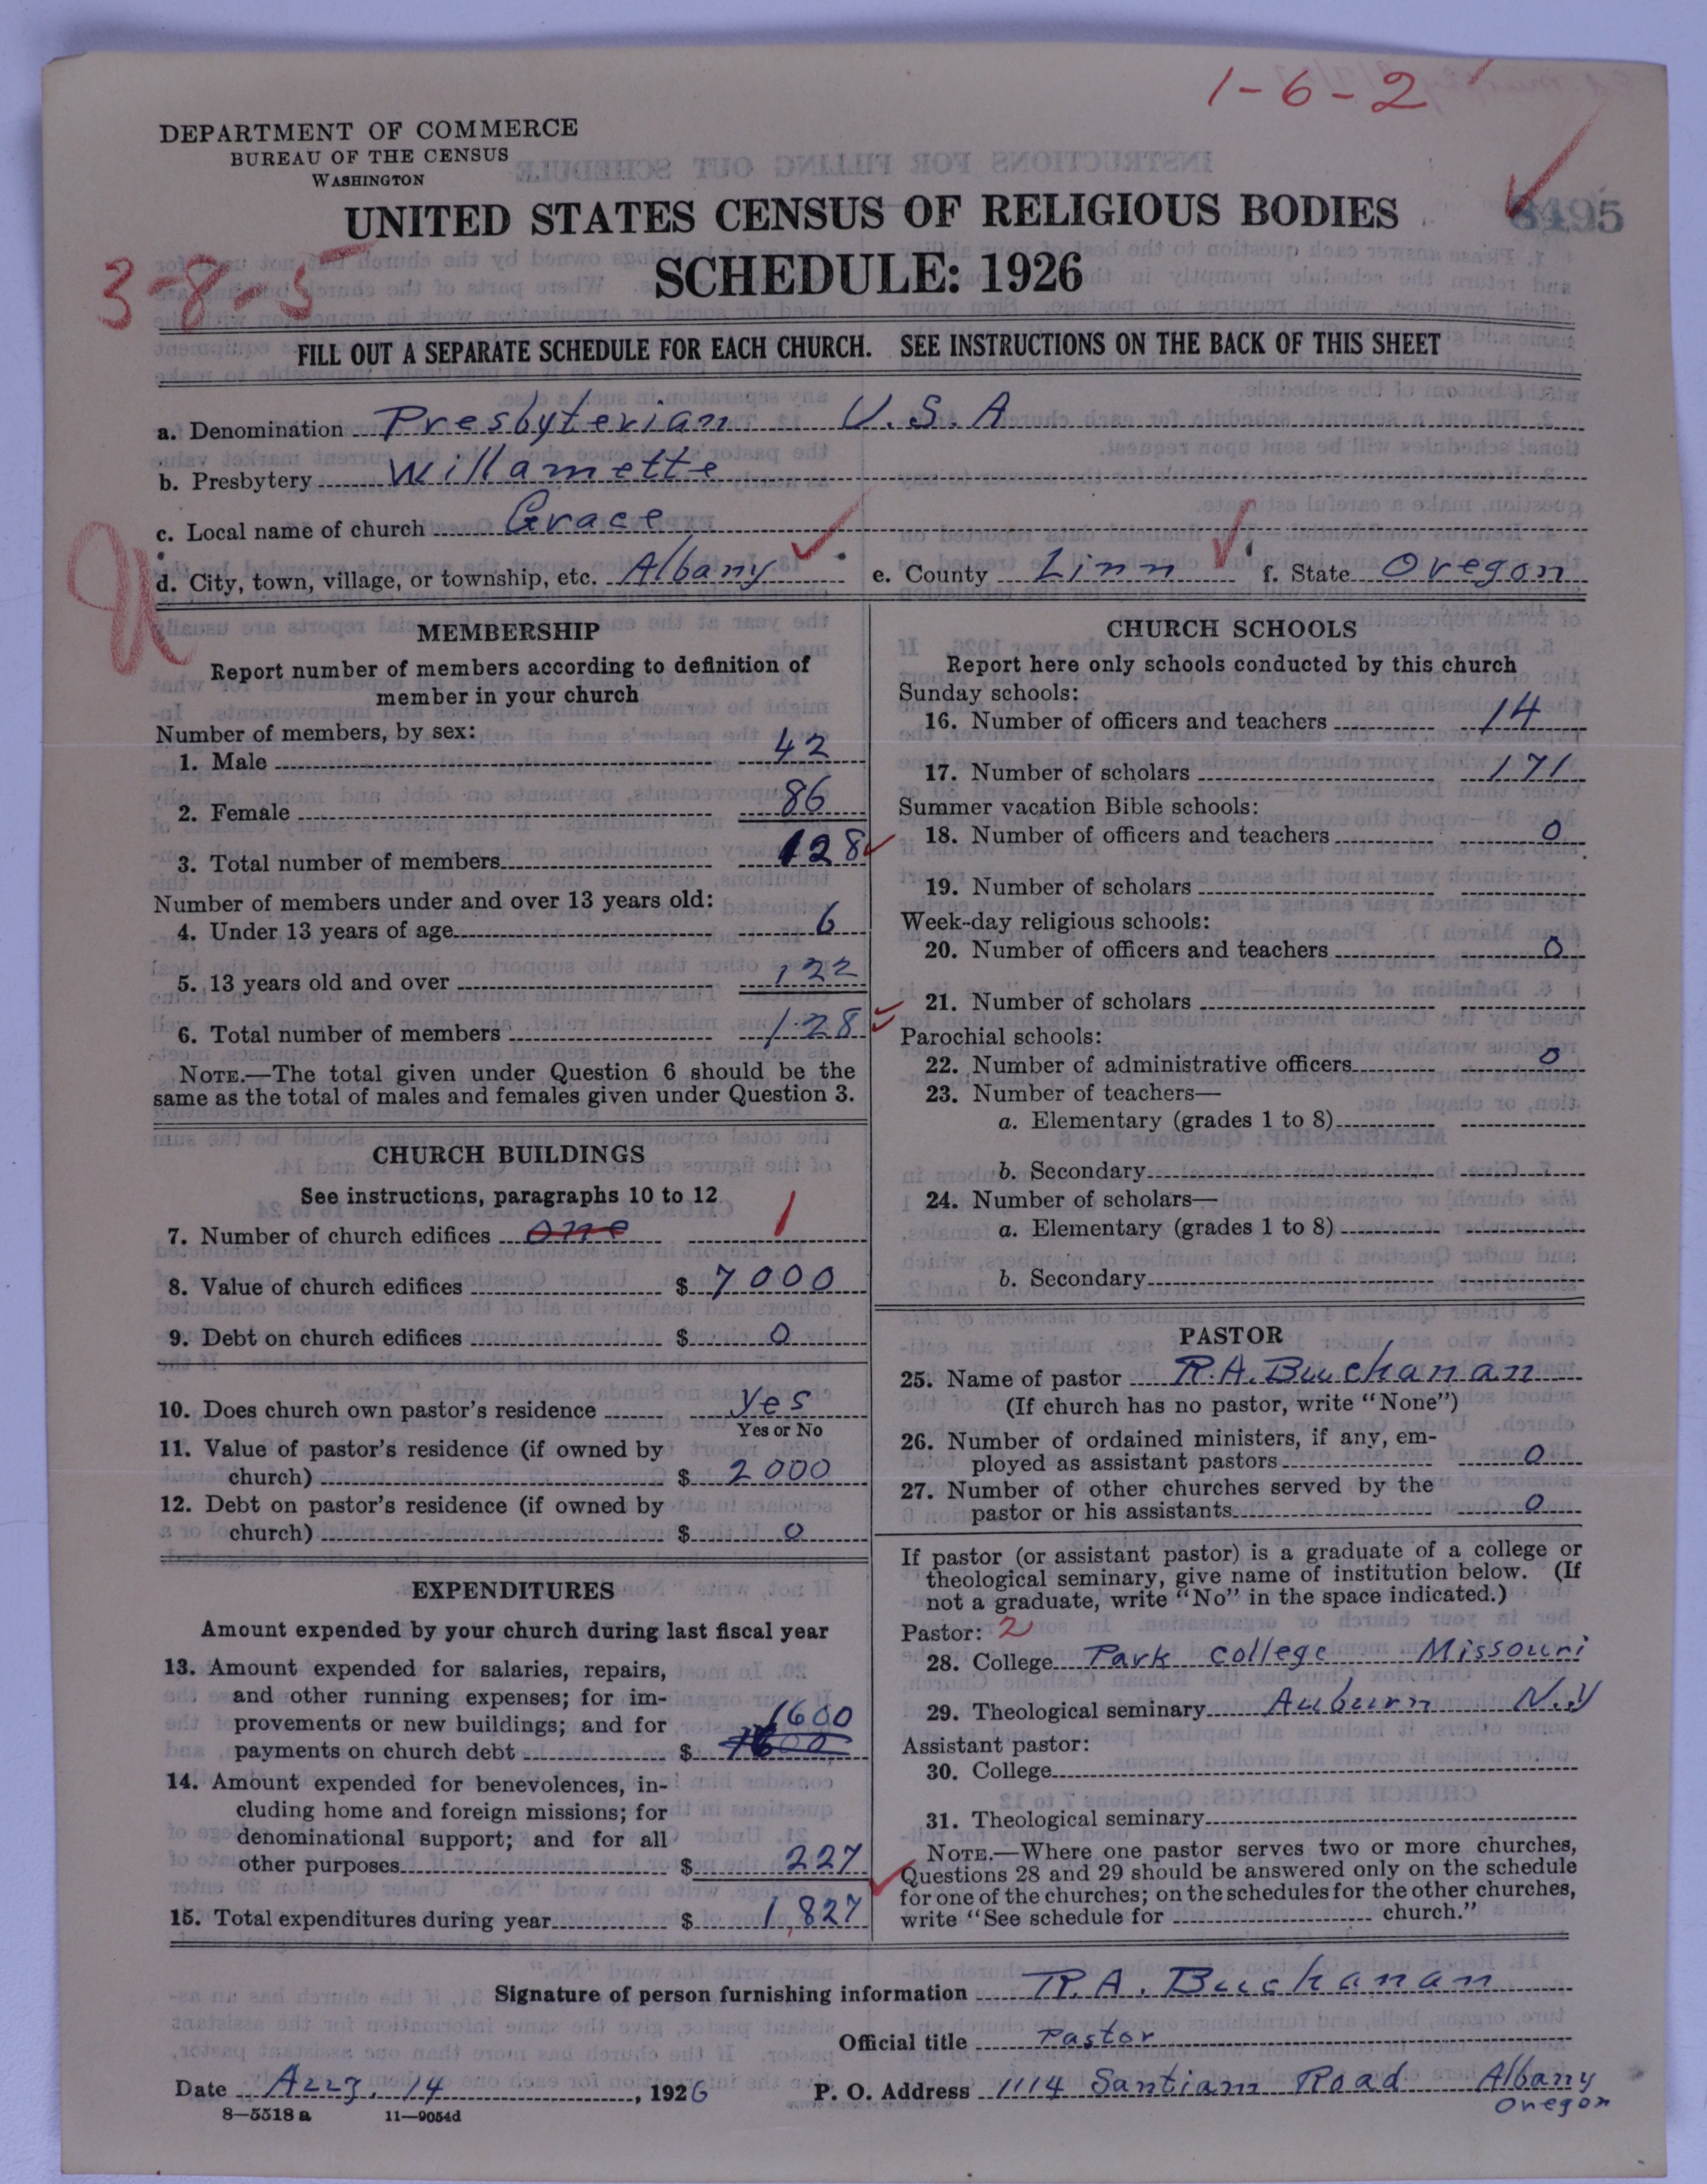 1-6-2
DEPARTMENT OF COMMERCE
BUREAU OF THE CENSUS
WASHINGTON
UNITED STATES CENSUS OF RELIGIOUS BODIES
8495
SCHEDULE: 1926
3-8-5
FILL OUT A SEPARATE SCHEDULE FOR EACH CHURCH. SEE INSTRUCTIONS ON THE BACK OF THIS SHEET
a. Denomination Presbyterian U.S.A
b. Presbytery Willamette
c. Local name of church Grace
d. City, town, village, or township, etc. Albany e. County Linn f. State Oregon
MEMBERSHIP
Report number of members according to definition of
member in your church
Number of members, by sex:
1. Male 42
2. Female 86
3. Total number of members 128
Number of members under and over 13 years old:
4. Under 13 years of age 6
5. 13 years old and over 122
6. Total number of members 128
NOTE.—The total given under Question 6 should be the
same as the total of males and females given under Question 3.
CHURCH BUILDINGS
See instructions, paragraphs 10 to 12
7. Number of church edifices one 1
8. Value of church edifices $ 7000
9. Debt on church edifices $ 0
10. Does church own pastor's residence yes
Yes or No
11. Value of pastor's residence (if owned by
church) $ 2000
12. Debt on pastor's residence (if owned by
church) $ 0
EXPENDITURES
Amount expended by your church during last fiscal year
13. Amount expended for salaries, repairs,
and other running expenses; for im-
provements or new buildings; and for 1600
payments on church debt $
14. Amount expended for benevolences, in-
cluding home and foreign missions; for
denominational support; and for all
other purposes $ 227
15. Total expenditures during year $ 1,827
CHURCH SCHOOLS
Report here only schools conducted by this church
Sunday schools:
16. Number of officers and teachers 14
17. Number of scholars 171
Summer vacation Bible schools:
18. Number of officers and teachers 0
19. Number of scholars
Week-day religious schools:
20. Number of officers and teachers 0
21. Number of scholars
Parochial schools:
22. Number of administrative officers 0
23. Number of teachers—
a. Elementary (grades 1 to 8)
b. Secondary
24. Number of scholars—
a. Elementary (grades 1 to 8)
b. Secondary
PASTOR
25. Name of pastor R.A. Buchanan
(If church has no pastor, write "None")
26. Number of ordained ministers, if any, em-
ployed as assistant pastors 0
27. Number of other churches served by the
pastor or his assistants 0
If pastor (or assistant pastor) is a graduate of a college or
theological seminary, give name of institution below. (If
not a graduate, write "No" in the space indicated.)
Pastor: 2
28. College Park college Missouri
29. Theological seminary Auburn N.Y
Assistant pastor:
30. College
31. Theological seminary
NOTE.—Where one pastor serves two or more churches,
Questions 28 and 29 should be answered only on the schedule
for one of the churches; on the schedules for the other churches,
write "See schedule for church."
Signature of person furnishing information R. A. Buchanan
Official title Pastor
Date Aug. 14, 1926 P. O. Address 1114 Santiam Road Albany
Oregon
8—5518 a 11—9054d